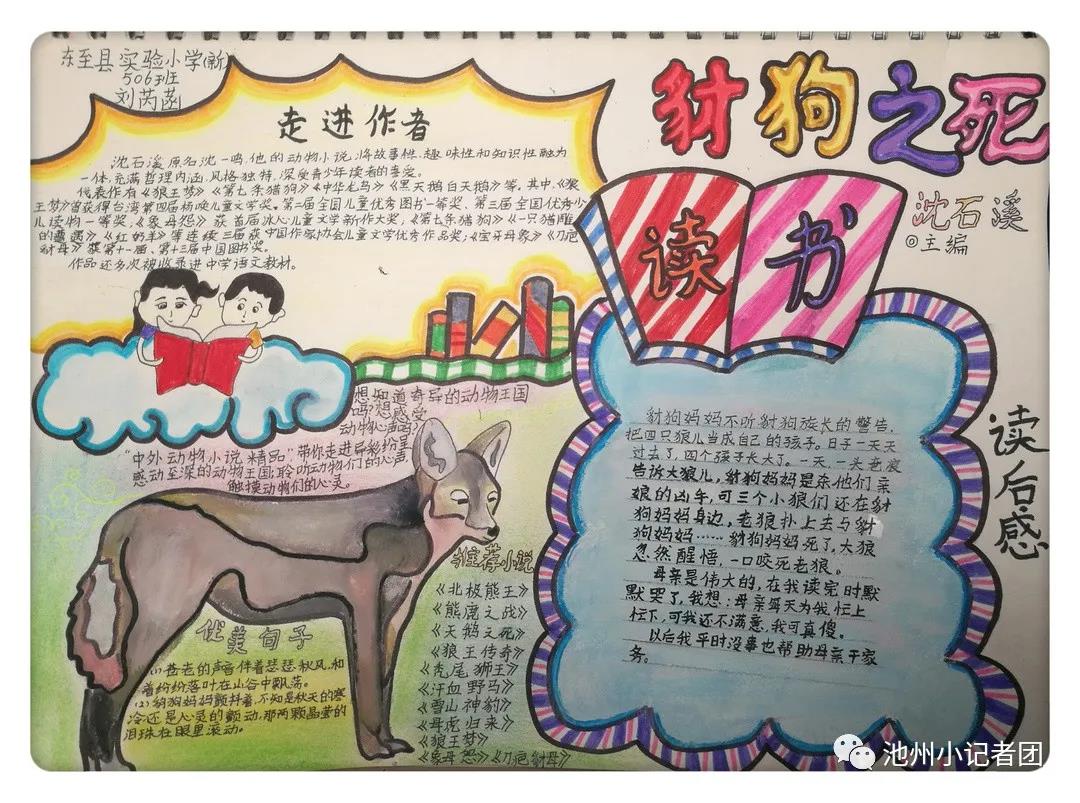 东至县实验小学(新)
506班
刘芮菡
豺狗之死
沈石溪
◎主编
走进作者
沈石溪原名沈一鸣,他的动物小说将故事性、趣味性和知识性融为
一体,充满哲理内涵,风格独特,深受青少年读者的喜爱。
代表作有《狼王梦》《第七条猎狗》《中华龙鸟》《黑天鹅白天鹅》等。其中,《狼
王梦》曾获得台湾第四届杨唤儿童文学奖。第二届全国儿童优秀图书一等奖、第三届全国优秀少
儿读物一等奖,《象母怨》获首届冰心儿童文学新作大奖,《第七条猎狗》《一只猎雕
的遭遇》《红奶羊》等连续三届获中国作家协会儿童文学优秀作品奖;《宝牙母象》《刀疤
豺母》获第十一届、第十三届中国图书奖。
作品还多次被收录进中学语文教材。
读书
想知道奇异的动物王国
吗?想感受
动物心声吗?
"中外动物小说精品"带你走进异彩纷呈
感动至深的动物王国;聆听动物们的心声
触摸动物们的心灵。
推荐小说
《北极熊王》
《熊鹿之战》
《天鹅之死》
《狼王传奇》
《秃尾狮王》
《汗血野马》
《雪山神豹》
《母虎归来》
《狼王梦》
《象母怨》《刀疤豺母》
优美句子
(1)苍老的声音伴着瑟瑟秋风,和
着纷纷落叶在山谷中飘荡。
(2)豺狗妈妈颤抖着,不知是秋天的寒
冷还是心灵的颤动,那两颗晶莹的
泪珠在眼里滚动。
读后感
豺狗妈妈不听豺狗族长的警告,
把四只狼儿当成自己的孩子。日子一天天
过去了,四个孩子长大了。一天,一头老狼
告诉大狼儿,豺狗妈妈是杀他们亲
娘的凶手,可三个小狼们还在豺
狗妈妈身边,老狼扑上去与豺
狗妈妈……豺狗妈妈死了,大狼
忽然醒悟,一口咬死老狼。
母亲是伟大的,在我读完时默
默哭了,我想:母亲每天为我忙上
忙下,可我还不满意,我可真傻。
以后我平时没事也帮助母亲干家
务。
池州小记者团